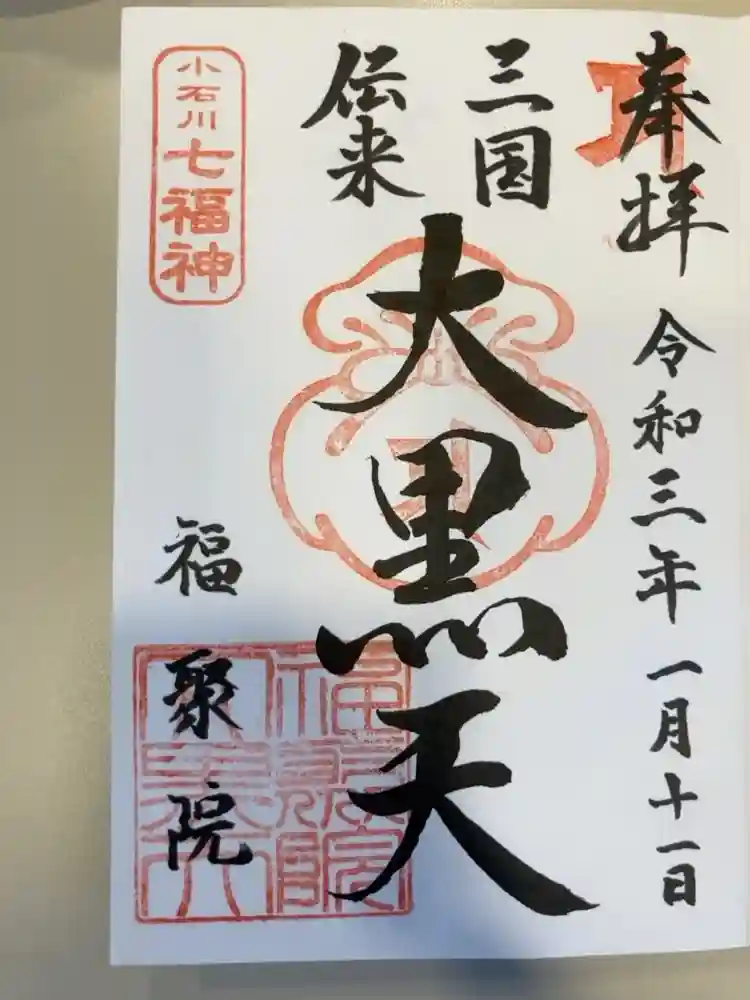 奉拝
令和三年一月十一日
三国
伝来
大黒天
小石川七福神
福聚院